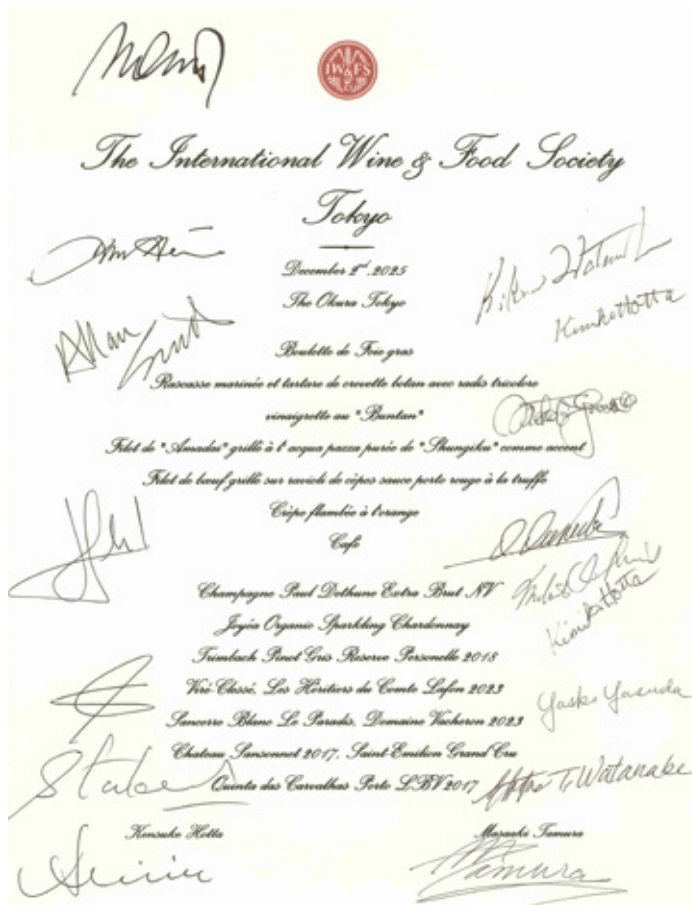 IW&FS
The International Wine & Food Society
Tokyo
December 2nd, 2025
The Okura Tokyo
Allan Smith
Kimiko Hotta
Boulette de Foie gras
Rascasse marinée et tartare de crevette botan avec radis tricolore
vinaigrette au "Buntan"
Filet de "Amadai" grillé à l'acqua pazza purée de "Shungiku" comme accent
Filet de bœuf grillé sur ravioli de cèpes sauce porto rouge à la truffe
Crêpe flambée à l'orange
Café
Champagne Paul Dethune Extra Brut NV
Joyéa Organic Sparkling Chardonnay
Kimiko Hotta
Trimbach Pinot Gris Reserve Personelle 2018
Viré-Clessé, Les Héritiers du Comte Lafon 2023
Yasko Yasuda
Sancerre Blanc Le Paradis, Domaine Vacheron 2023
Chateau Sansonnet 2017, Saint-Emilion Grand Cru
Quinta das Carvalhas Porto LBV 2017
T. Watanabe
Kensuke Hotta Masaaki Tamura
Tamura